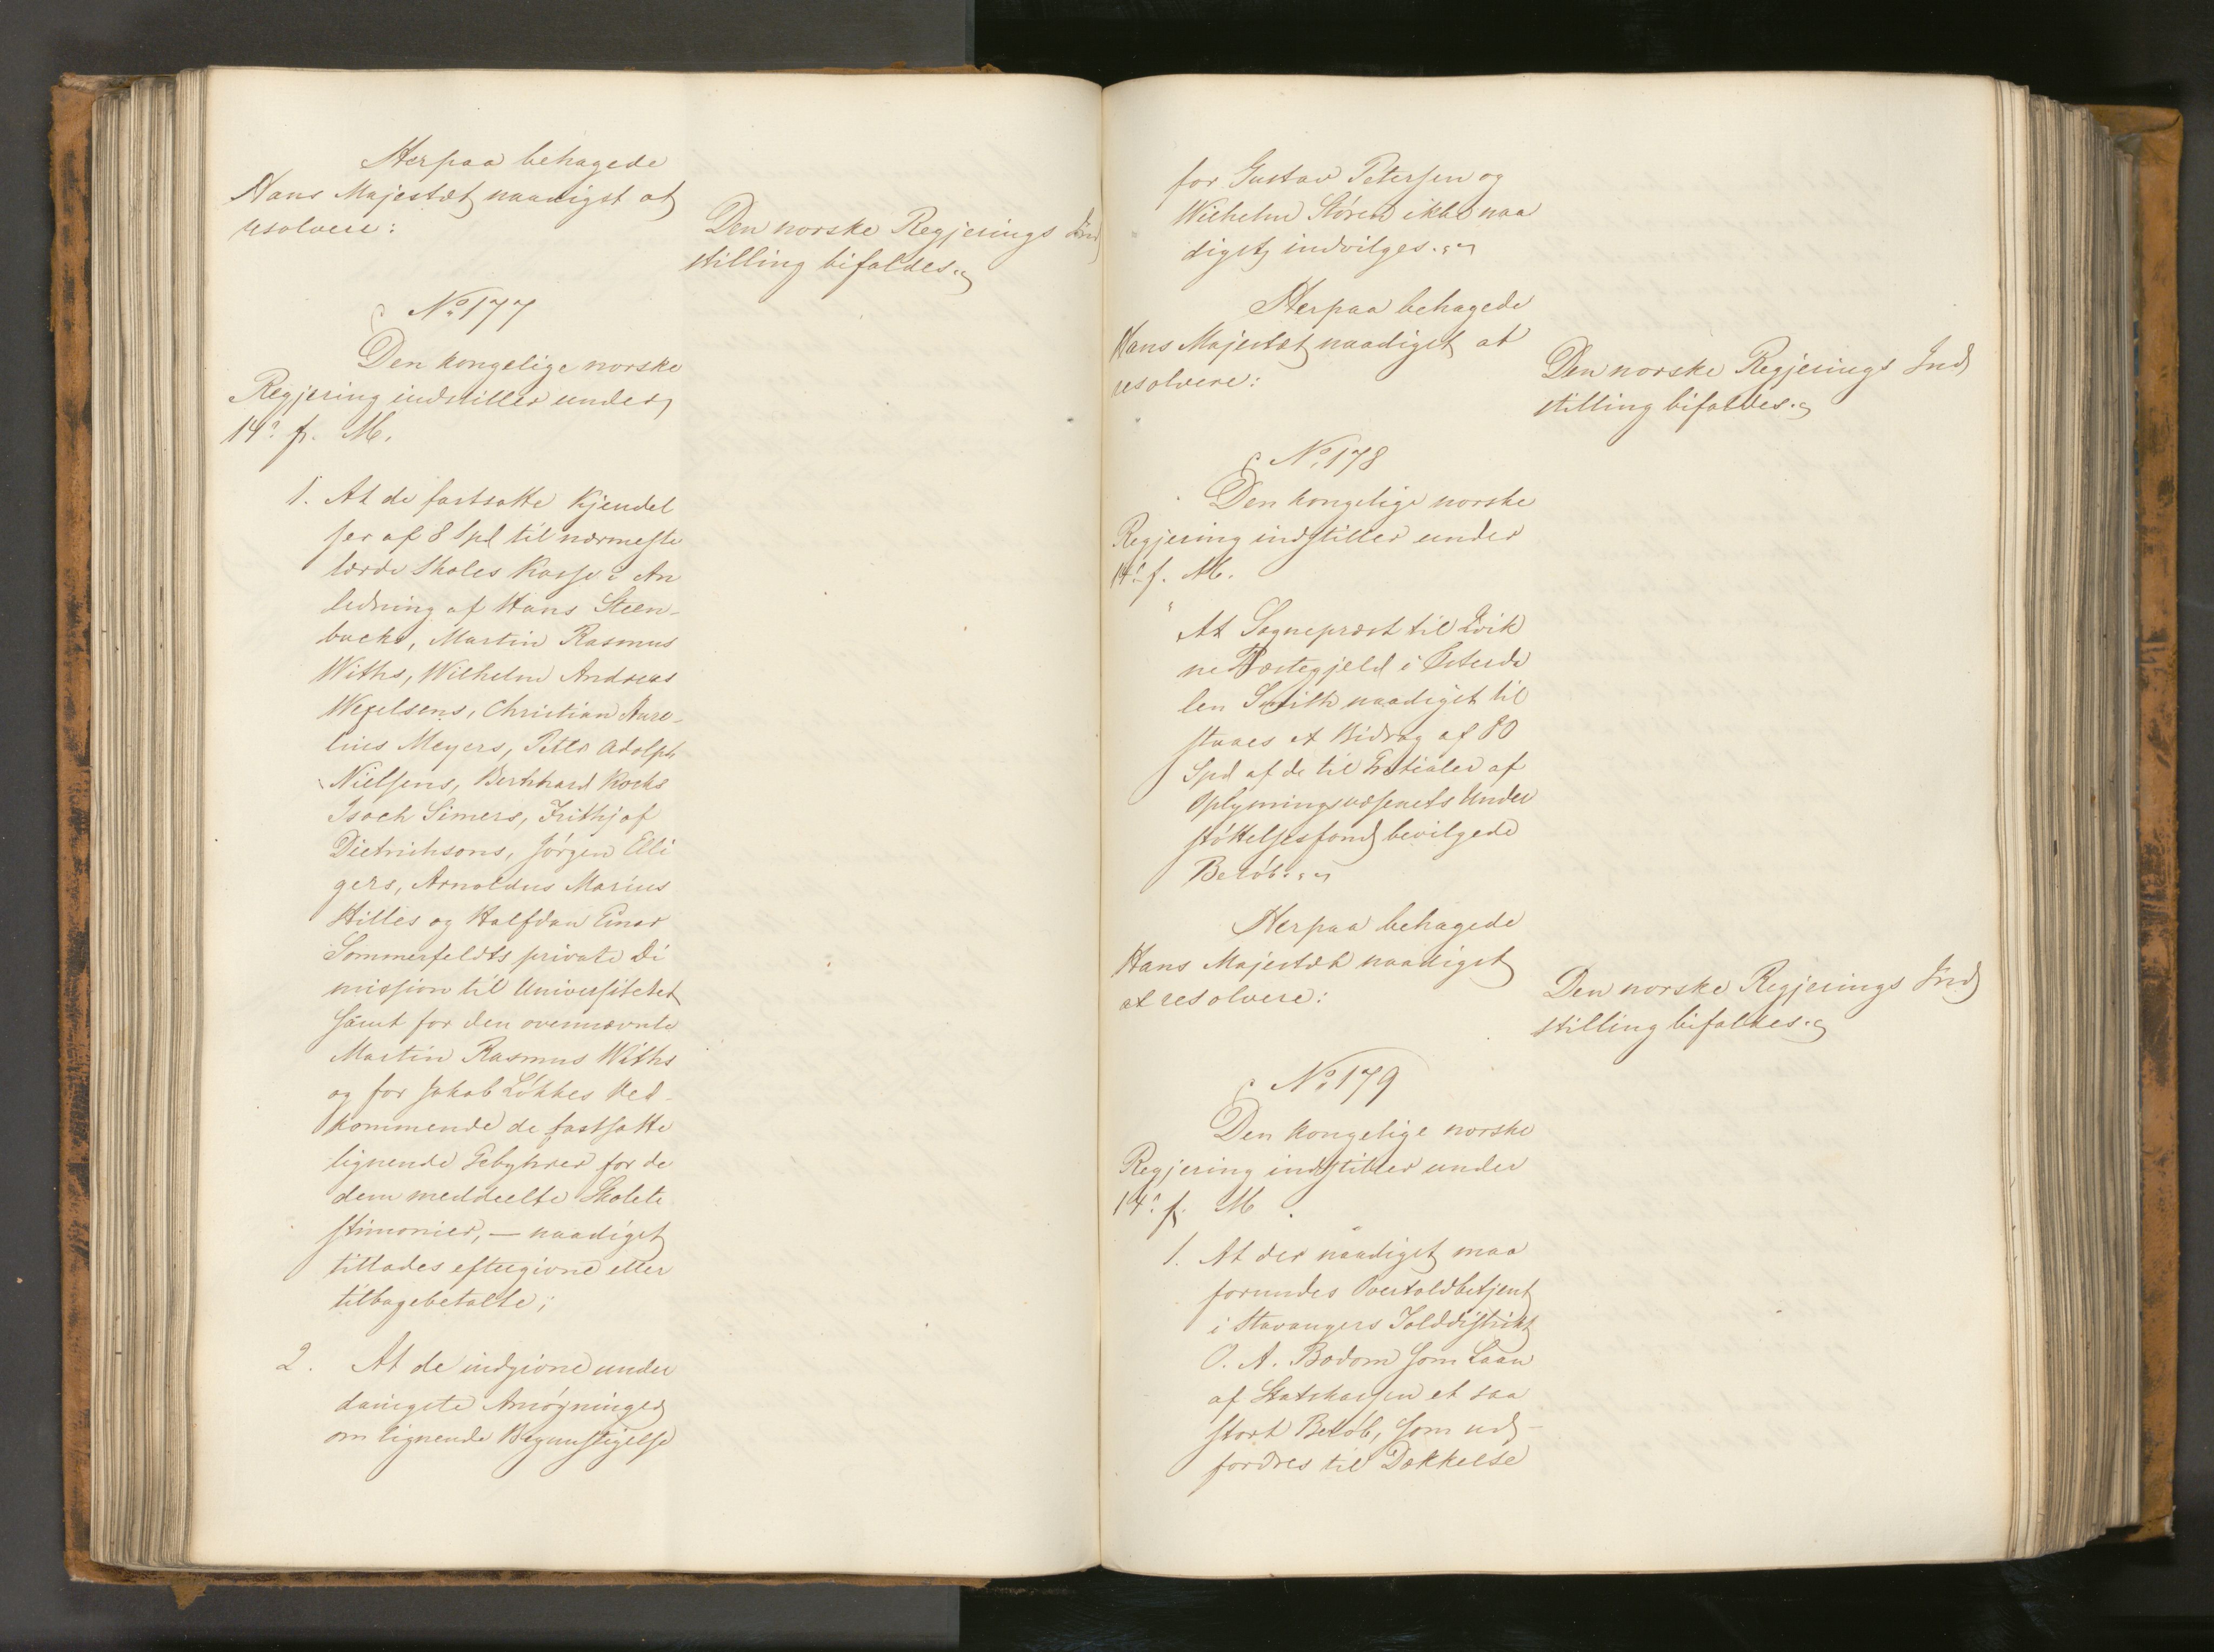 Herpaa behagede
Hans Majestæt naadigst at
resolvere:
Den norske Regjerings Ind
stilling bifaldes.
No 177
Den kongelige norske
Regjering indstiller under
14de f. M.
1. At de fastsatte Kjendel
ser af 8 Spd til nærmeste
lærde Skoles Kasse i An
ledning af Hans Steen-
bucks, Martin Rasmus
Withs, Wilhelm Andreas
Wexelsens, Christian Aure-
lius Meyers, Petter Adolph
Nielsens, Bernhard Kochs
Isach Simers, Frithjof
Dietrichsons, Jörgen Elli
gers, Arnoldus Marius
Hilles og Halfdan Einar
Sommerfeldts private Di
mission til Universitetet
samt for den ovennævnte
Martin Rasmus Withs
og for Jakob Lökkes Ved-
kommende de fastsatte
lignende Gebyhrer for de
dem meddeelte Skolete
stimonier, — naadigst
tillades eftergivne eller
tilbagebetalte;
2. At de indgivne under
danigste Ansögninger
om lignende Begunstigelse
for Gustav Petersen og
Wilhelm Stören ikke naa
digst indvilges.
Herpaa behagede
Hans Majestæt naadigst at
resolvere:
Den norske Regjerings Ind
stilling bifaldes.
No. 178
Den kongelige norske
Regjering indstiller under
14de f. M.
At Sognepræst til Qvik
ne Præstegjeld i Österda
len Smith naadigst til
staaes et Bidrag af 80
Spd af de til Gratialer af
Oplysningsvæsenets Under
stöttelsesfond bevilgede
Belöb.
Herpaa behagede
Hans Majestæt naadigst
at resolvere:
Den norske Regjerings Ind
stilling bifaldes.
No. 179
Den kongelige norske
Regjering indstiller under
14de f. M
1. At der naadigst maa
forundes Overtoldbetjent
i Stavangers Tolddistrikt
O. A. Bodom som Laan
af Statskassen et saa
stort Belöb, som ud-
fordres til Dækkelse